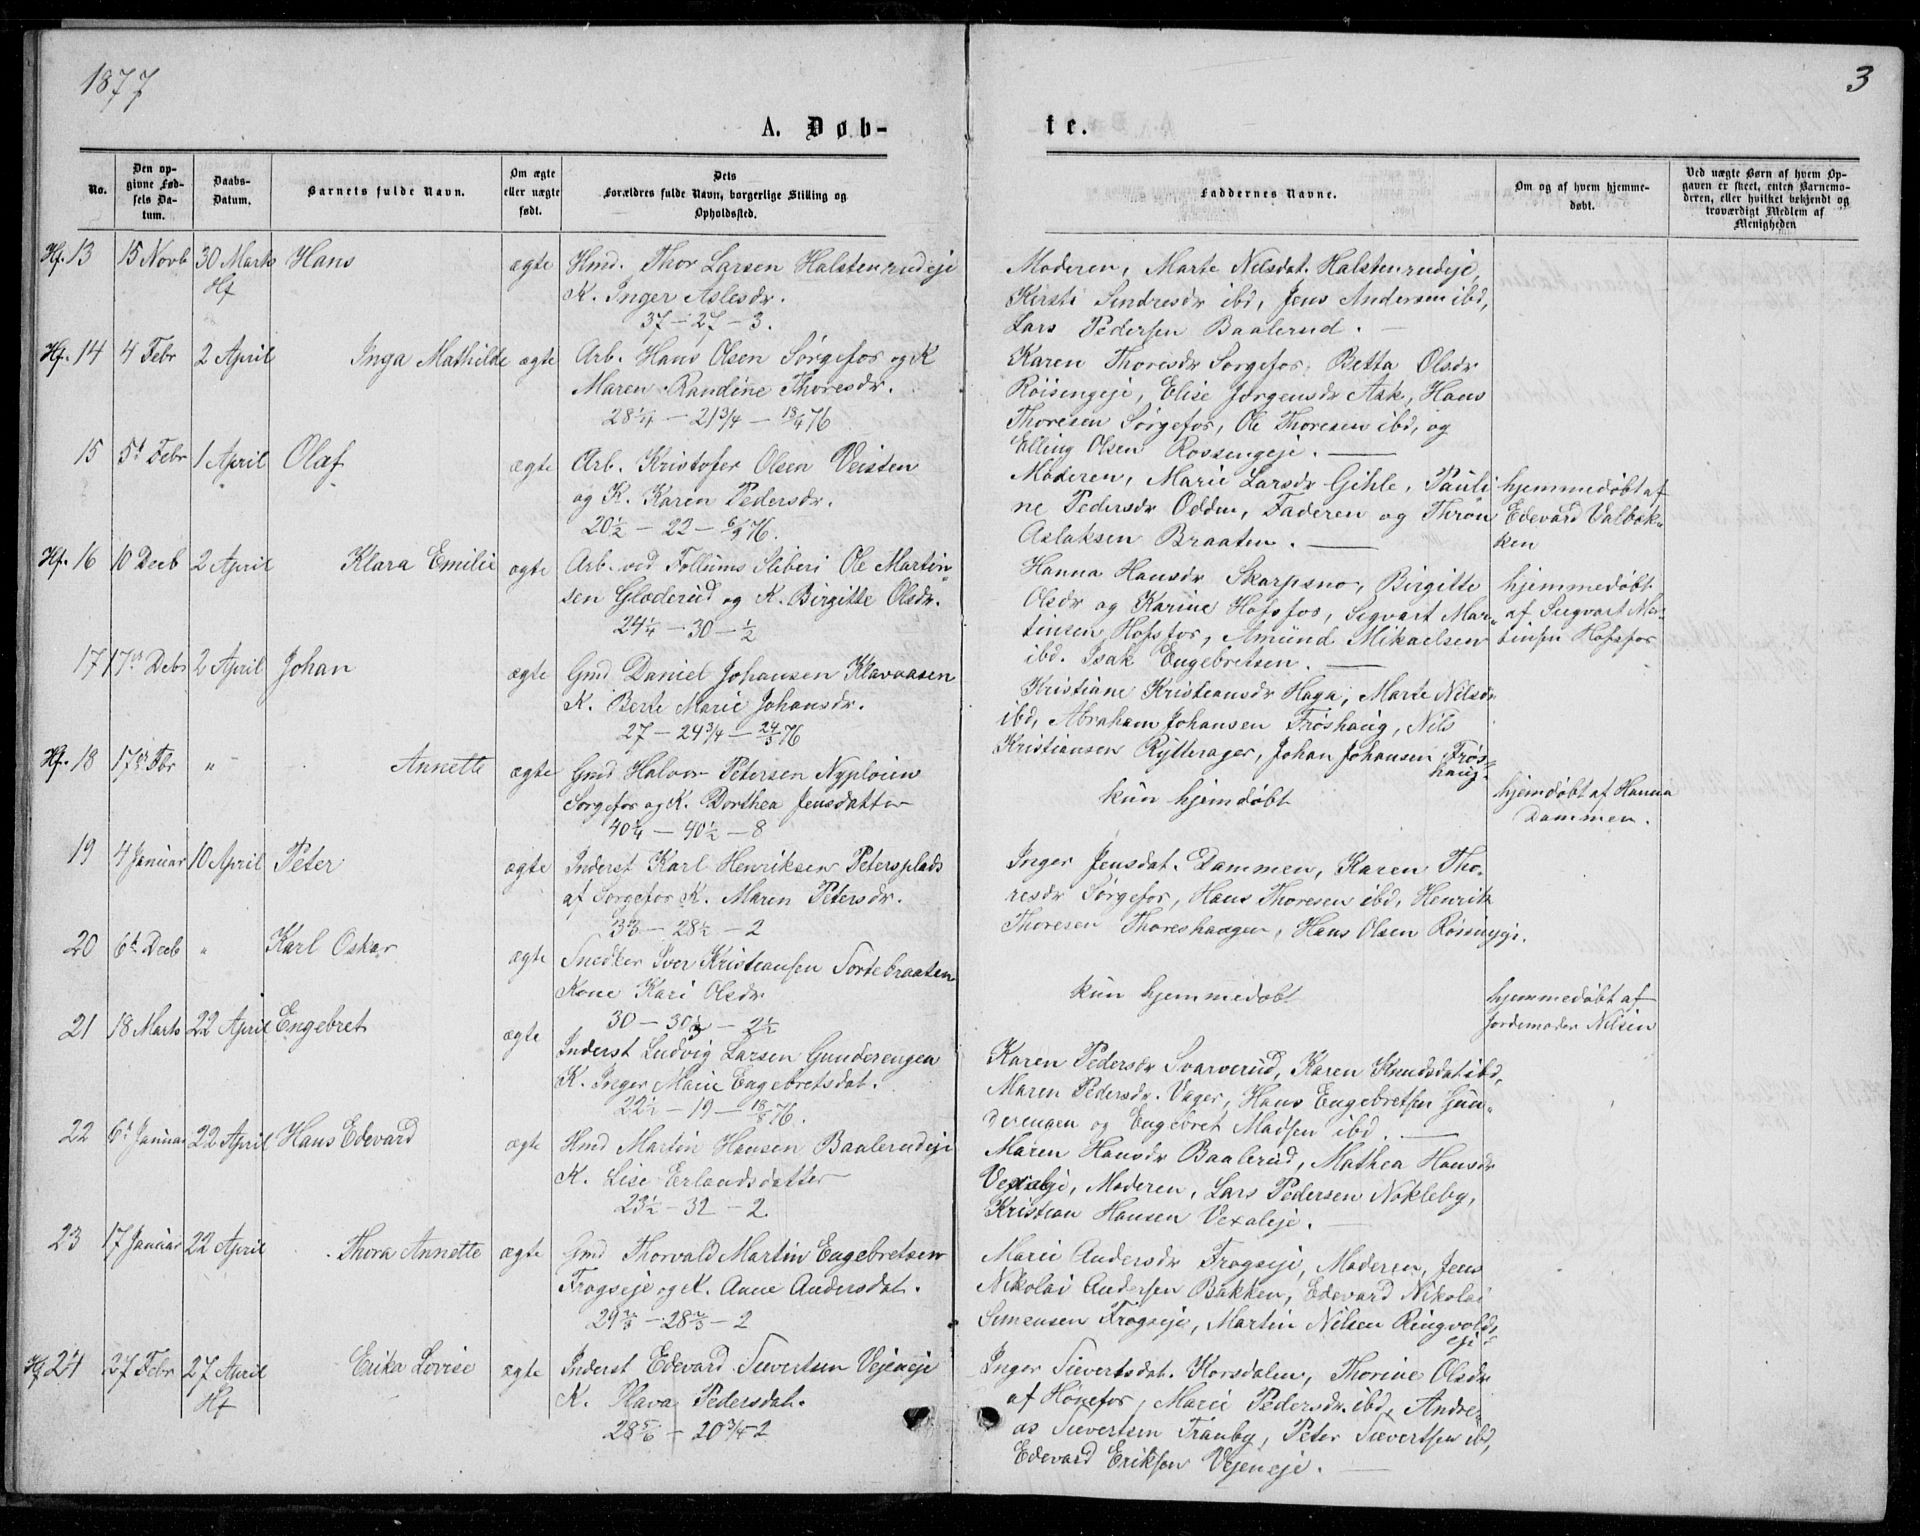 1877
3
A. Døb-
te.
No.
Den op-
givne Fød-
sels Da-
tum.
Daabs-
Datum.
Barnets fulde Navn.
Om ægte
eller uægte
født.
Dets
Forældres fulde Navn, borgerlige Stilling og
Opholdssted.
Faddernes Navne.
Om og af hvem hjemme-
døbt.
Ved uægte Børn af hvem Op-
gaven er skeet, enten Barnemo-
deren, eller hvilket bekjendt og
troværdigt Medlem af
Menigheden
Hf. 13 15 Novb 30 Marts Hans ægte Hmd. Thor Larsen Halstenrudeje
Hf K. Inger Aslesdr.
37 – 27 – 3.
Moderen, Marte Nilsdat. Halstenrudeje,
Kirsti Sindresdr ibd, Jens Andersen ibd,
Lars Pedersen Baalerud. –
Hf. 14 4 Febr 2 April Inga Mathilde ægte Arb. Hans Olsen Sørgefos og K
Maren Randine Thoresdr.
28 1/4 – 21 3/4 – 18/4 76
Karen Thoresdr Sørgefos, Betta Olsdr
Røisengeje, Elise Jørgensdr Ask, Hans
Thoresen Sørgefos, Ole Thoresen ibd, og
Elling Olsen Rossengeje. –
15 5t Febr 1 April Olaf ægte Arb. Kristofer Olsen Veisten
og K. Karen Pedersdr.
20 1/2 – 22 – 6/9 76.
Moderen, Marie Larsdr Gihle, Pauli
ne Pedersdr Odden, Faderen og Thron
Aslaksen Braaten. –
hjemmedøbt af
Edevard Valbæk-
ken
Hf. 16 10 Decb 2 April Klara Emilie ægte Arb. ved Follums Sliberi Ole Martin-
sen Gladerud og K. Birgitte Olsdr.
24 1/4 – 30 – 1/2
Hanna Hansdr Skarpsno, Birgitte
Olsdr og Karine Hofsfos, Sigvart Mar-
tinsen Hofsfos, Amund Mikaelsen
ibd. Isak Engebretsen. –
hjemmedøbt
af Siegvart Mar-
tinsen Hofsfos
17 17de Decbr 2 April Johan ægte Gmd Daniel Johansen Klavaasen
K. Berte Marie Johansdr.
27 – 24 3/4 – 24/3 76
Kristiane Kristiansdr Haga, Marte Nilsdr
ibd, Abraham Johansen Frøshaug, Nils
Kristiansen Rytterager, Johan Johansen Frøs-
haug.
Hf. 18 17de Fbr " Annette ægte Gmd Halvor Petersen Nypløien
Sørgefos og K. Dorthea Jensdatter
40 1/4 – 40 1/2 – 8
kun hjemdøbt
hjemdøbt af Hanna
Dammen.
19 4 Januar 10 April Peter ægte Inderst Karl Henriksen Petersplads
af Sørgefos K. Maren Petersdr.
33 – 28 1/2 – 2
Inger Jensdat. Dammen, Karen Tho-
resdr Sørgefos, Hans Thoresen ibd, Henrik
Thoresen Thoreshaugen, Hans Olsen
20 6t Decb " Karl Oskar ægte Snedker Iver Kristiansen Sortebraaten
Kone Kari Olsdr
30 – 30 1/2 – 2 1/2
kun hjemmedøbt
hjemmedøbt af
Jordemoder Nilsen
21 18 Marts 22 April Engebret ægte Inderst Ludvig Larsen Gunderengen
K. Inger Marie Engebretsdat.
22 1/2 – 19 – 18/8 76.
Karen Pedersdr Svarverud, Karen Knudsdat ibd,
Maren Pedersdr. Vager, Hans Engebretsen Gun-
derengen og Engebret Madsen ibd. –
22 6t Januar 22 April Hans Edevard ægte Hmd Martin Hansen Baalerudeje
K. Lise Erlandsdatter
23 1/2 – 32 – 2.
Maren Hansdr Baalerud, Mathea Hansdr
Vexaleje, Moderen, Lars Pedersen Nokleby,
Kristian Hansen Vexaleje. –
23 17 Januar 22 April Thora Annette ægte Gmd Thorvald Martin Engebretsen
Frogseje og K. Anne Andersdat.
29 2/3 – 28 2/3 – 2
Marie Andersdr Frogseje, Moderen, Jens
Nikolai Andersen Bakken, Edevard Nikolai
Simensen Frogseje, Martin Nilsen Ringvolds-
eje
Hf 24 27 Febr 27 April Erika Lovise ægte Inderst Edevard Sievertsen Vejeneje
Hf K. Hava Pedersdat.
28 5/6 – 20 3/4 – 2
Inger Sievertsdat. Korsdalen, Thorine Olsdr
af Hønefos, Marie Pedersdr ibd, Andre-
as Sievertsen Tranby, Peter Sievertsen ibd,
Edevard Eriksen Vejeneje. –